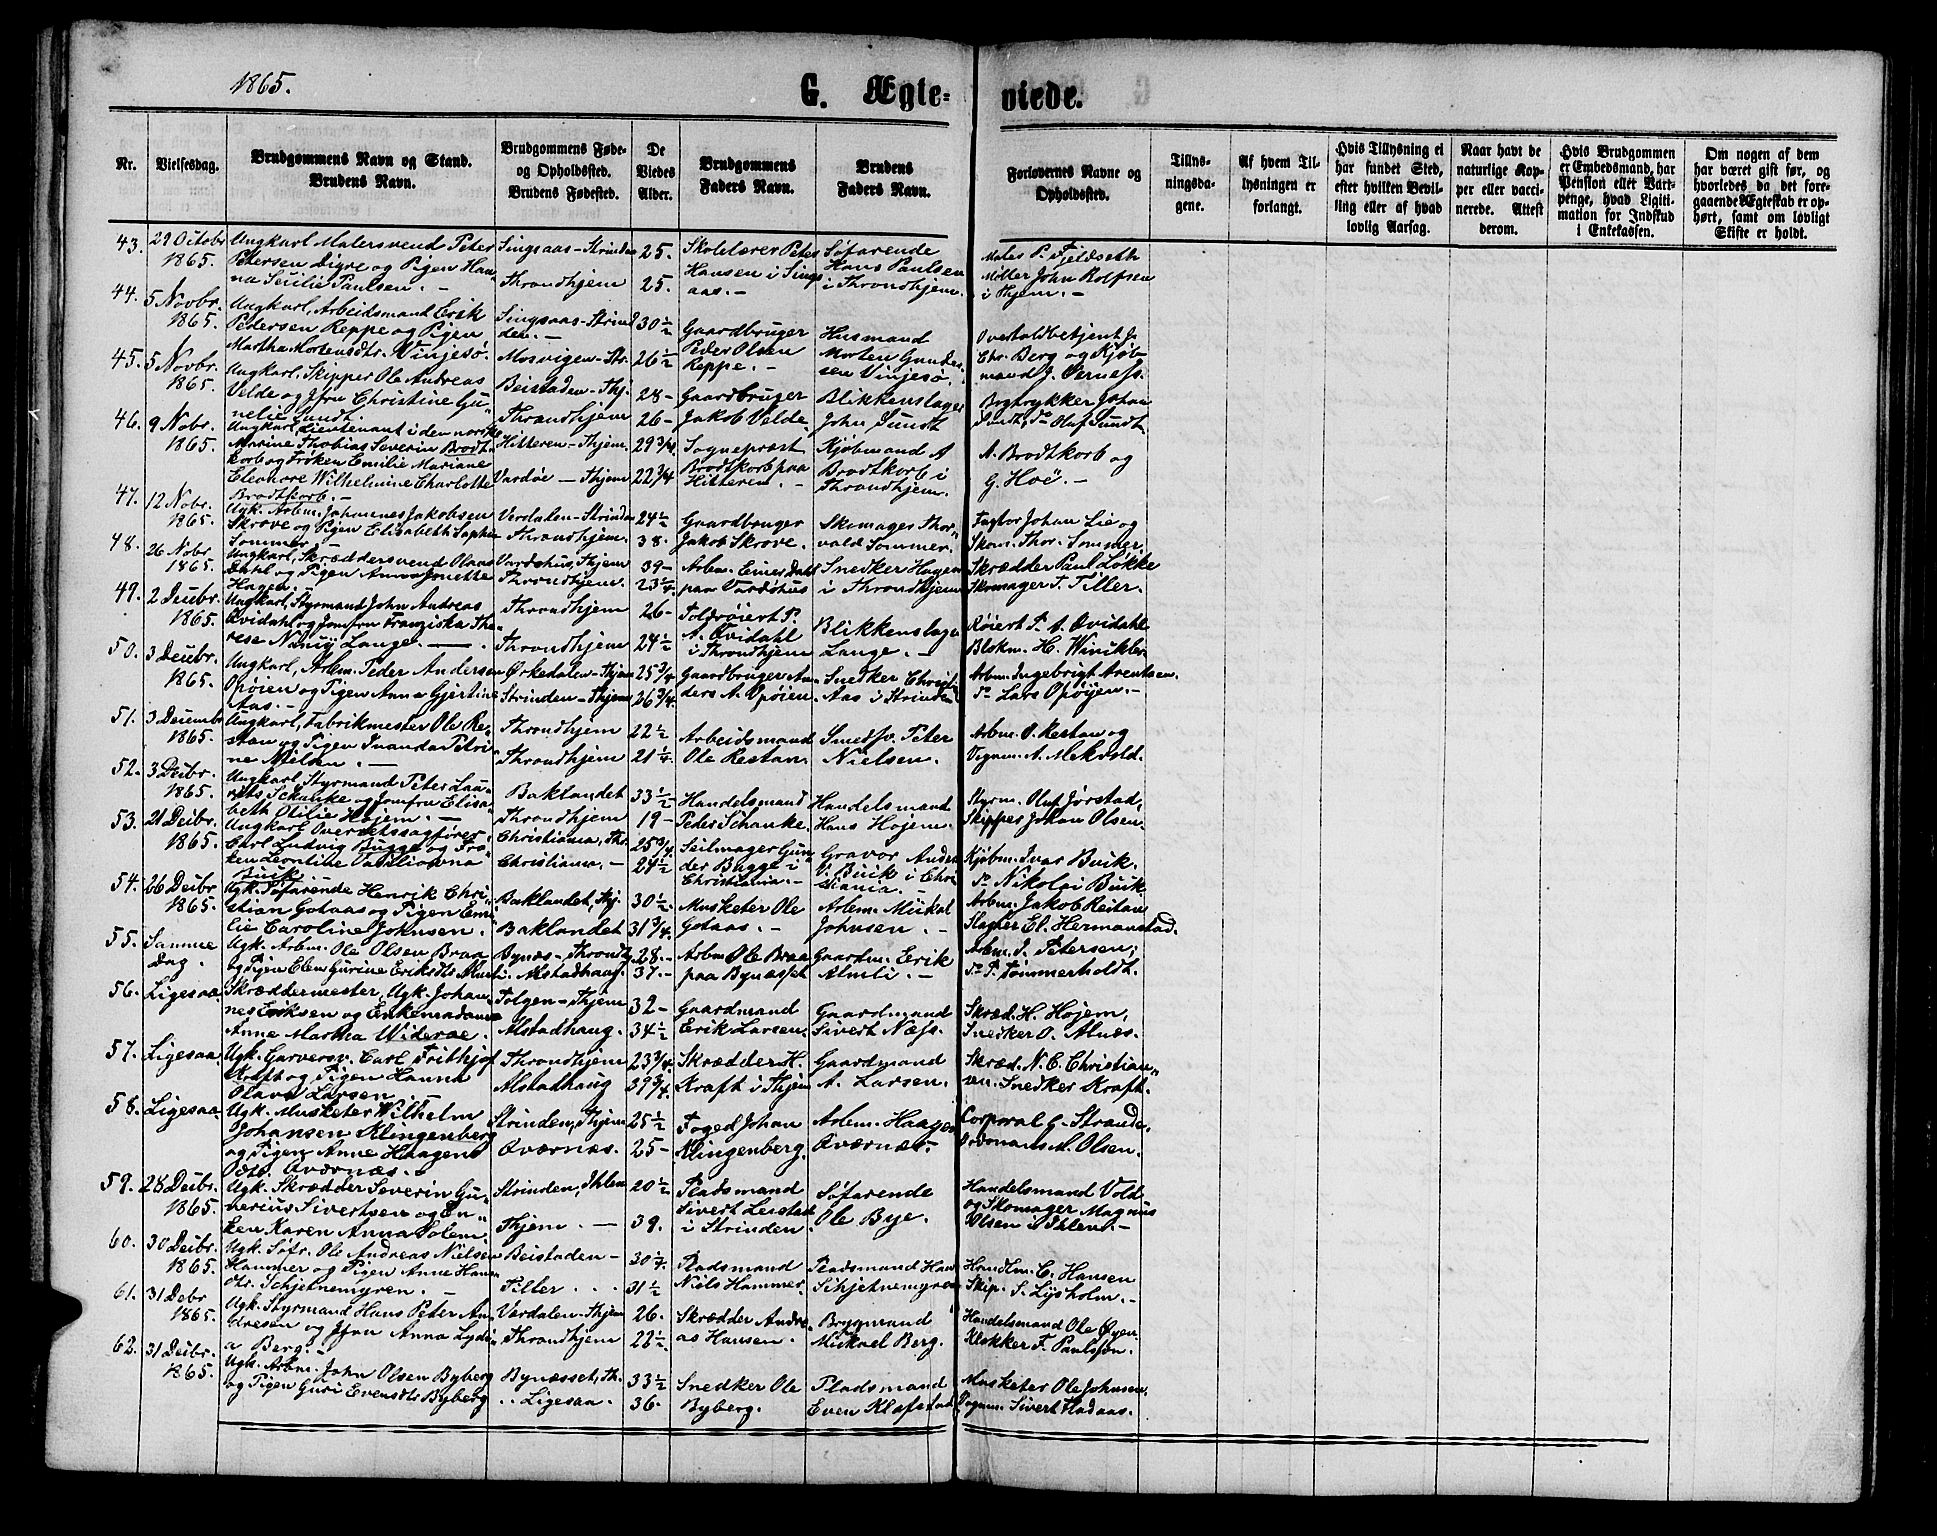 1865.
G. Ægte-
viede.
Nr.
Vielsesdag.
Brudgommens Navn og Stand.
Brudens Navn.
Brudgommens Føde-
og Opholdssted.
Brudens Fødested.
De
Viedes
Alder.
Brudgommens
Faders Navn.
Brudens
Faders Navn.
Forlovernes Navne og
Opholdssted.
Tillys-
ningsda-
gene.
Af hvem Til-
lysningen er
forlangt.
Hvis Tillysning ei
har fundet Sted,
efter hvilken Bevil-
ling eller af hvad
lovlig Aarsag.
Naar havt de
naturlige Kop-
per eller vacci-
nerede. Attest
derom.
Hvis Brudgommen
er Embedsmand, har
Pension eller Vart-
penge, hvad Ligiti-
mation for Indskud
i Enkekassen.
Om nogen af dem
har været gift før, og
hvorledes da det fore-
gaaende Ægteskab er op-
hørt, samt om lovligt
Skifte er holdt.
43.
29 Octobr
1865.
Ungkarl Malersvend Peter
Petersen Digre og Pigen Han-
na Secilie Paulsen. —
Singsaas-Strinden
Throndhjem
25.
25.
Skolelærer Peter
Hansen i Sings
aas. —
Søfarende
Hans Paulsen
i Throndhjem.
Maler P. Fjeldseth
Møller John Rolfsen
i Thjem. —
44.
5 Novbr.
1865.
Ungkarl, Arbeidsmand Erik
Pedersen Reppe og Pigen
Martha Mortensdtr. Vinjesø.
Singsaas-Strind
den. —
Mosvigen-Str.
30 1/2
26 1/2
Gaardbruger
Peder Olsen
Reppe. —
Husmand
Morten Gunder-
sen Vinjesø.
Overtoldbetjent J.
Chr. Berg og Kjøb-
mand J. Øerness.
45.
5 Novbr.
1865.
Ungkarl, Skipper Ole Andreas
Velde og Jfru Christine Gu-
nelie Sundt.
Beistaden-Thj.
Throndhjem
28 —
26 —
Gaardbruger
Jakob Velde.
Blikkenslager
John Sundt
Bogtrykker Johan
Sundt, Do Oluf Sundt
46.
9 Nobr.
1865.
Ungkarl Lieutenant i den norske
Marine Thobias Severin Brodt-
korb og Frøken Emilie Mariane
Eleonore Wilhelmine Charlotte
Brodtkorb. —
Hitteren-Thjem.
Vardøe — Thjem
29 3/4
22 3/4
Sogneprest
Brodtkorb paa
Hitteren. —
Kjøbmand A
Brodtkorb i
Throndhjem.
A. Brodtkorb og
G. Hoë. —
47.
12 Nobr.
1865.
Ugk. Arbm. Johannes Jakobsen
Skrove og Pigen Elisabeth Sophie
Sommer. —
Verdalen-Strinden
Throndhjem.
24 1/2
38.
Gaardbruger
Jakob Skrove.
Skomager Thor-
vald Sommer.
Fagtor Johan Lie og
Skom. Thor. Sommer.
48.
26 Nobr.
1865.
Ungkarl, Skræddersvend Olaus
Dahl og Pigen Anna Jonette
Hagen. —
Vardøhus, Thjem
Throndhjem.
39 —
23 1/4
Arbm. Einer Dahl
paa Vardøhus
Snedker Hagen
i Throndhjem
Skrædder Paul Løkke
Skomager T. Tiller.
49.
2 Decbr.
1865.
Ungkarl, Styrmand John Andreas
Qvidahl og Jomfru Franziska The-
rese Nanny Lange. —
Throndhjem
Throndhjem
26 —
24 1/2
Toldrøiert P.
A. Qvidahl
i Throndhjem
Blikkenslager
Lange. —
Røiert P. A. Qvidahl
Blokm. H. Winikler
50.
3 Decbr.
1865.
Ungkarl, Arbm. Peder Andersen
Opøien og Pigen Anna Gjertine
Aas. —
Ørkedalen-Thjem
Strinden-Thjem
25 3/4
26 3/4
Gaardbruger An-
ders A. Opøien
Snedker Christ-
Aas i Strinden
Arbm. Ingebrigt Arentsen.
Do Lars Opøyen. —
51.
3 Decembr
1865.
Ungkarl, Fabrikmester Ole Re-
stan og Pigen Ivanda Petri-
ne Nielsen. —
Throndhjem
Throndhjem
22 1/2
21 1/4
Arbeidsmand
Ole Restan
Smedsv. Peter
Nielsen.
Arbm. O. Restan og
Vognm. A. Mekvold.
52.
3 Decbr.
1865.
Ungkarl, Styrmand Peter Lau-
rits Schanke og Jomfru Elisa-
beth Otilie Højem. —
Baklandet
Throndhjem
33 1/2
19 —
Handelsmand
Peder Schanke.
Handelsmand
Hans Højem.
Styrm. Oluf Jørstad,
Skipper Johan Olsen.
53.
21 Decbr.
1865.
Ungkarl Overretssagfører
Carl Ludvig Bugge og Frø-
ken Leontine Vasiliovna
Buik. —
Christiania, Thr.
Christiania, —
25 3/4
24 1/2
Seilmager Gun-
der Bugge i
Christiania. —
Gravør Andre
V. Buik i Chri
stiania. —
Kjøbm. Ivar Buik.
Do Nikolai Buik
54.
26 Decbr
1865.
Ugk. Søfarende Henrik Chri-
stian Gotaas og Pigen Emi-
lie Caroline Johnsen.
Baklandet, Thj.
Baklandet
30 1/2
31 3/4
Musketer Ole
Gotaas. —
Arbem. Mikal
Johnsen. —
Arbm. Jakob Reitan
Slagter El. Hermanstad.
55.
Samme
Dag.
Ugk. Arbm. Ole Olsen Braa
og Pigen Elen Gurine Eriksdtr Almli.
Bynæs-Throndh.
Alstadhaug.
28. —
37. —
Arbm Ole Braa
paa Bynæsset
Gaardm. Erik
Almli. —
Arbm. J. Petersen;
Do P. Tømmerholdt.
56.
Ligesaa
Skræddermester, Ugk. Johan-
nes Eriksen og Enkemadame
Anne Martha Widerøe.
Tolgen-Thjem
Alstadhaug.
32 —
34 1/2
Gaardmand
Erik Larsen.
Gaardmand
Sivert Næss.
Skræd. H. Højem,
Snedker O. Alnæs.
57.
Ligesaa
Ugk. Garversv. Carl Frithjof
Kraft og Pigen Hanna
Olava Larsen —
Throndhjem
Alstadhaug
23 3/4
39 3/4
Skrædder H.
Kraft i Thjem
Gaardmand
A. Larsen.
Skræd. N. C. Christian-
sen. Snedker Kraft.
58.
Ligesaa
Ugk. Musketer Wilhelm
Johansen Klingenberg
og Pigen Anne Haagens
Dtr. Qværnæs. —
Strinden, Thjem
Qværnæs.
25 1/2
25 —
Foged Johan
Klingenberg.
Arbm. Haagen
Qværnæs. —
Corporal C. Strande.
Ordonans A. Olsen.
59.
28 Decbr.
1865.
Ugk. Skrædder Severin Gu-
nerius Sivertsen og En-
ken Karen Anna Solem
Strinden, Ihlen
Thjem. —
20 1/2
39.
Pladsmand
Sivert Leistad
i Strinden
Søfarende
Ole Bye.
Handelsmand Vold
og Skomager Magnus
Olsen i Ihlen. —
60.
30 Decbr.
1865.
Ugk. Søfr. Ole Andreas Nielsen
Hammer og Pigen Anne Hans-
dtr. Schjetnemyren. —
Beistaden —
Tiller . . .
30 1/4
31 1/2
Pladsmand
Niels Hammer.
Pladsmand Hans
Schjetnemyren
Handlm. C. Hansen
Skip. S. Lysholm. —
61.
31 Debr
1865.
Ugk. Styrmand Hans Peter An-
dresen og Jfru Anna Lydi-
a Berg. —
Værdalen-Thjem
Throndhjem
26.
22 1/2
Skrædder Andre-
as Hansen.
Brygmand
Mikael Berg.
Handelsmand Ole Øyen
Klokker F. Paulsson.
62.
31 Decbr.
1865.
Ugk. Arbm. John Olsen Byberg
og Pigen Guri Evensdtr Byberg
Bynæsset, Th.
. . Ligesaa. —
33 1/2
36.
Snedker Ole
Byberg.
Pladsmand
Even Klefstad
Musketer Ole Johnsen.
Vognm. Sivert Hadaas.